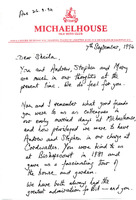 MICHAELHOUSE
7th September, 1994
Dear Sheila,
You and Andrew, Stephen and Mary
are much in our thoughts at the
present time. We do feel for you.
Nan and I remember what good friends
you were to us as
our early married at Michaelhouse,
and how privileged we were to have
Andrew and Stephen in our charge at
You were kind to us
at in 1989 and
gave us a fascinating tour of
the house and garden.
We have both always had the
greatest admiration for and you